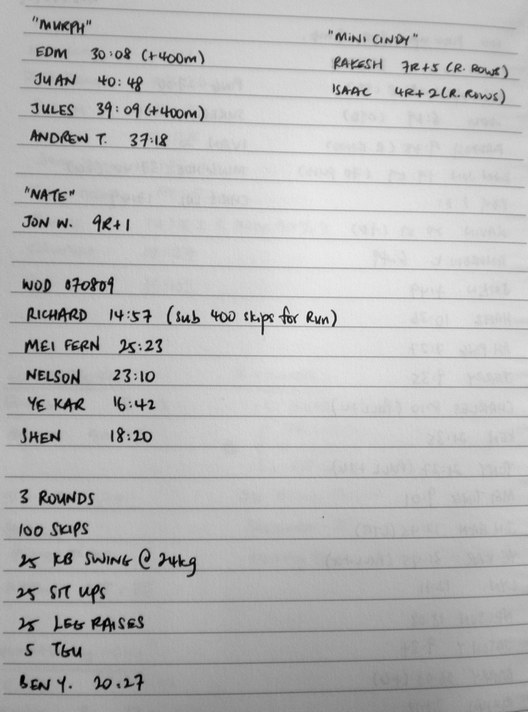 "MURPH"
EDM 30:08 (+400m)
JUAN 40:48
JULES 39:09 (+400m)
ANDREW T. 37:18
"MINI CINDY"
RAKESH 7R+5 (R. ROWS)
ISAAC 4R+2 (R. ROWS)
"NATE"
JON W. 9R+1
WOD 070809
RICHARD 14:57 (SUB 400 SKIPS FOR RUN)
MEI FERN 25:23
NELSON 23:10
YE KAR 16:42
SHEN 18:20
3 ROUNDS
100 SKIPS
25 KB SWING @ 24kg
25 SIT UPS
25 LEG RAISES
5 TGU
BEN Y. 20:27